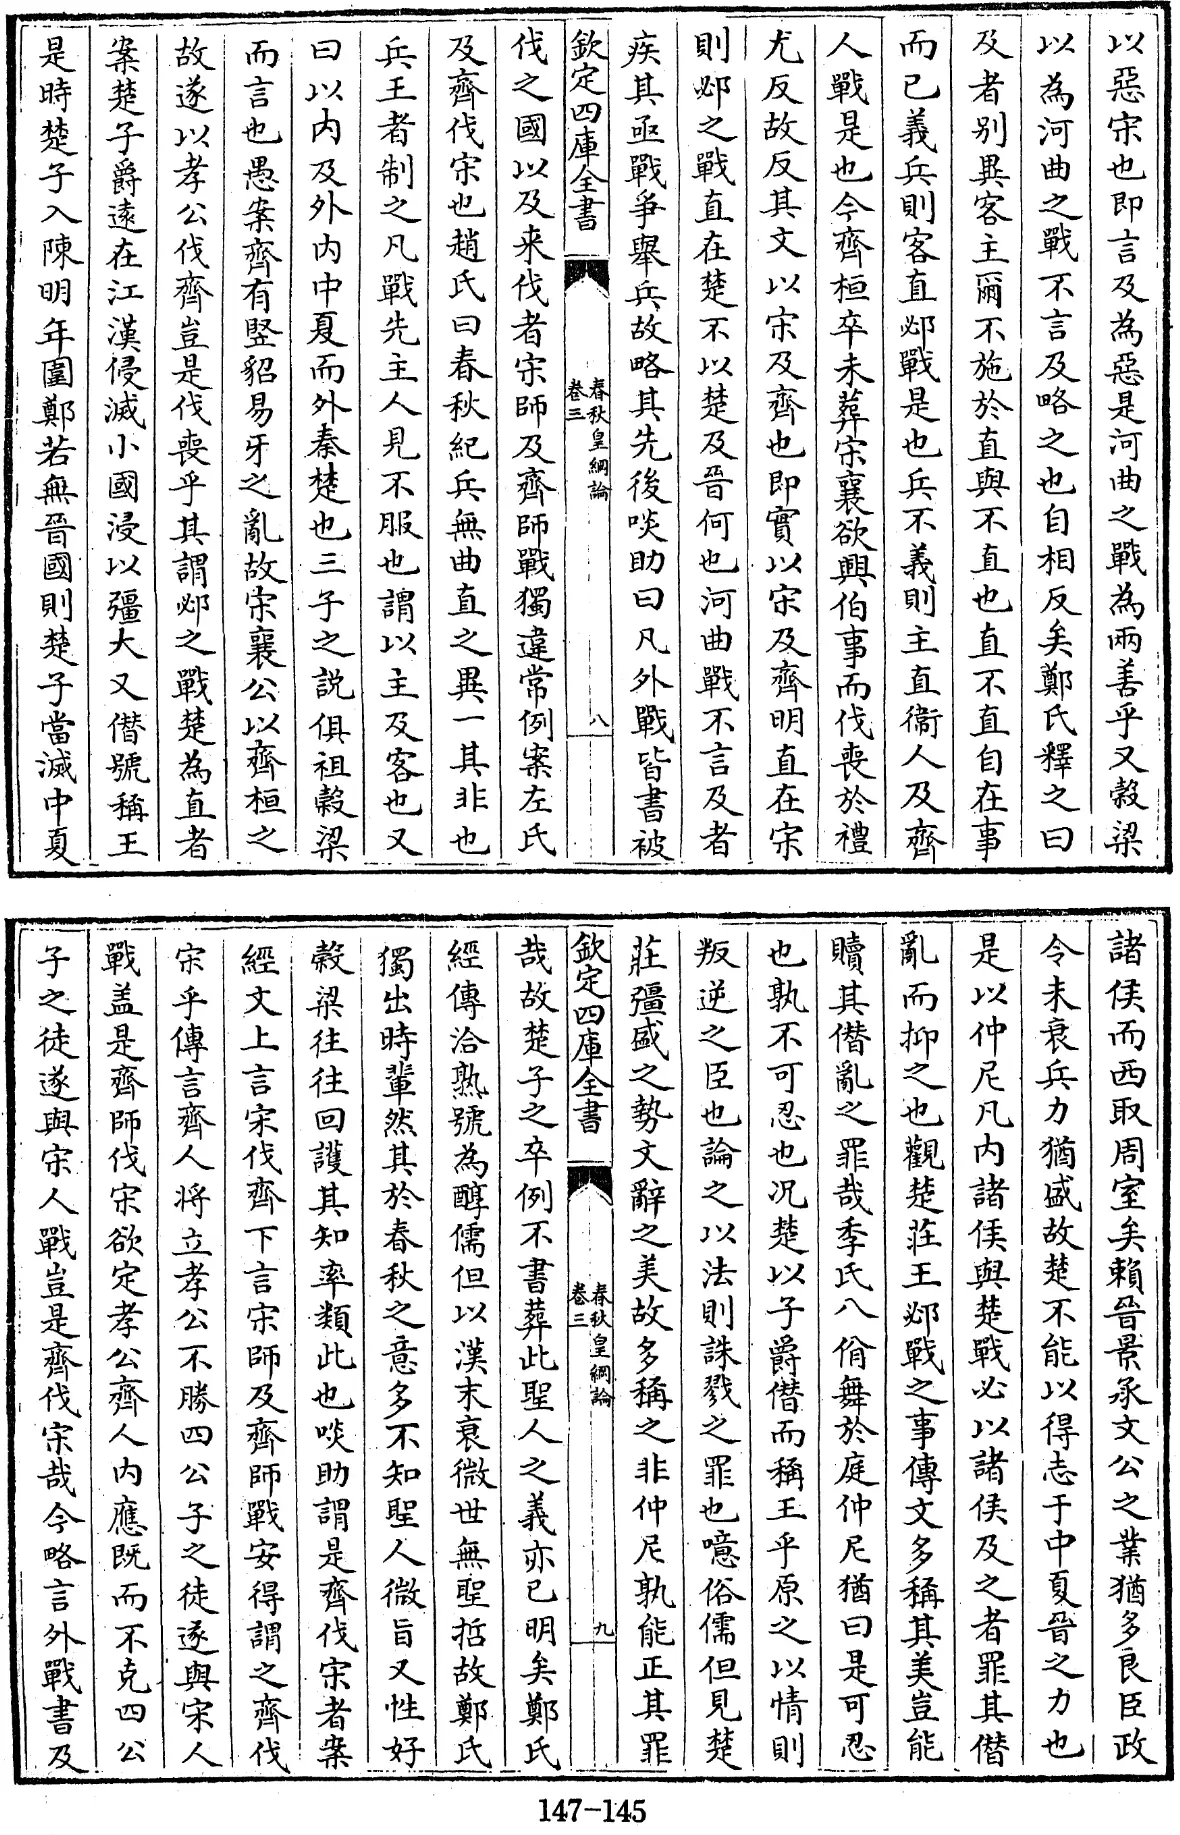 以惡宋也即言及為惡是河曲之戰為兩善乎又榖梁
以為河曲之戰不言及略之也自相反矣鄭氏釋之曰
及者别異客主爾不施於直與不直也直不直自在事
而已義兵則客直邲戰是也兵不義則主直衞人及齊
人戰是也今齊桓卒未葬宋襄欲興伯事而伐喪於禮
尤反故反其文以宋及齊也即實以宋及齊明直在宋
則邲之戰直在楚不以楚及晉何也河曲戰不言及者
疾其亟戰爭舉兵故略其先後啖助曰凡外戰皆書被
欽定四庫全書
春秋皇綱論
卷三
八
伐之國以及来伐者宋師及齊師戰獨違常例案左氏
及齊伐宋也趙氏曰春秋紀兵無曲直之異一其非也
兵王者制之凡戰先主人見不服也謂以主及客也又
曰以内及外内中夏而外秦楚也三子之説俱祖榖梁
而言也愚案齊有竪貂易牙之亂故宋襄公以齊桓之
故遂以孝公伐齊豈是伐喪乎其謂邲之戰楚為直者
案楚子爵逺在江漢侵滅小國浸以彊大又僭號稱王
是時楚子入陳明年圍鄭若無晉國則楚子當滅中夏
諸侯而西取周室矣賴晉景承文公之業猶多良臣政
令未衰兵力猶盛故楚不能以得志于中夏晉之力也
是以仲尼凡内諸侯與楚戰必以諸侯及之者罪其僭
亂而抑之也觀楚莊王邲戰之事傳文多稱其美豈能
贖其僭亂之罪哉季氏八佾舞於庭仲尼猶曰是可忍
也孰不可忍也况楚以子爵僭而稱王乎原之以情則
叛逆之臣也論之以法則誅戮之罪也噫俗儒但見楚
莊彊盛之勢文辭之美故多稱之非仲尼孰能正其罪
欽定四庫全書
春秋皇綱論
卷三
九
哉故楚子之卒例不書葬此聖人之義亦已明矣鄭氏
經傳洽熟號為醇儒但以漢末衰微世無聖哲故鄭氏
獨出時輩然其於春秋之意多不知聖人微旨又性好
榖梁往往回護其知率類此也啖助謂是齊伐宋者案
經文上言宋伐齊下言宋師及齊師戰安得謂之齊伐
宋乎傳言齊人将立孝公不勝四公子之徒遂與宋人
戰盖是齊師伐宋欲定孝公齊人内應既而不克四公
子之徒遂與宋人戰豈是齊伐宋哉今略言外戰書及
147-145